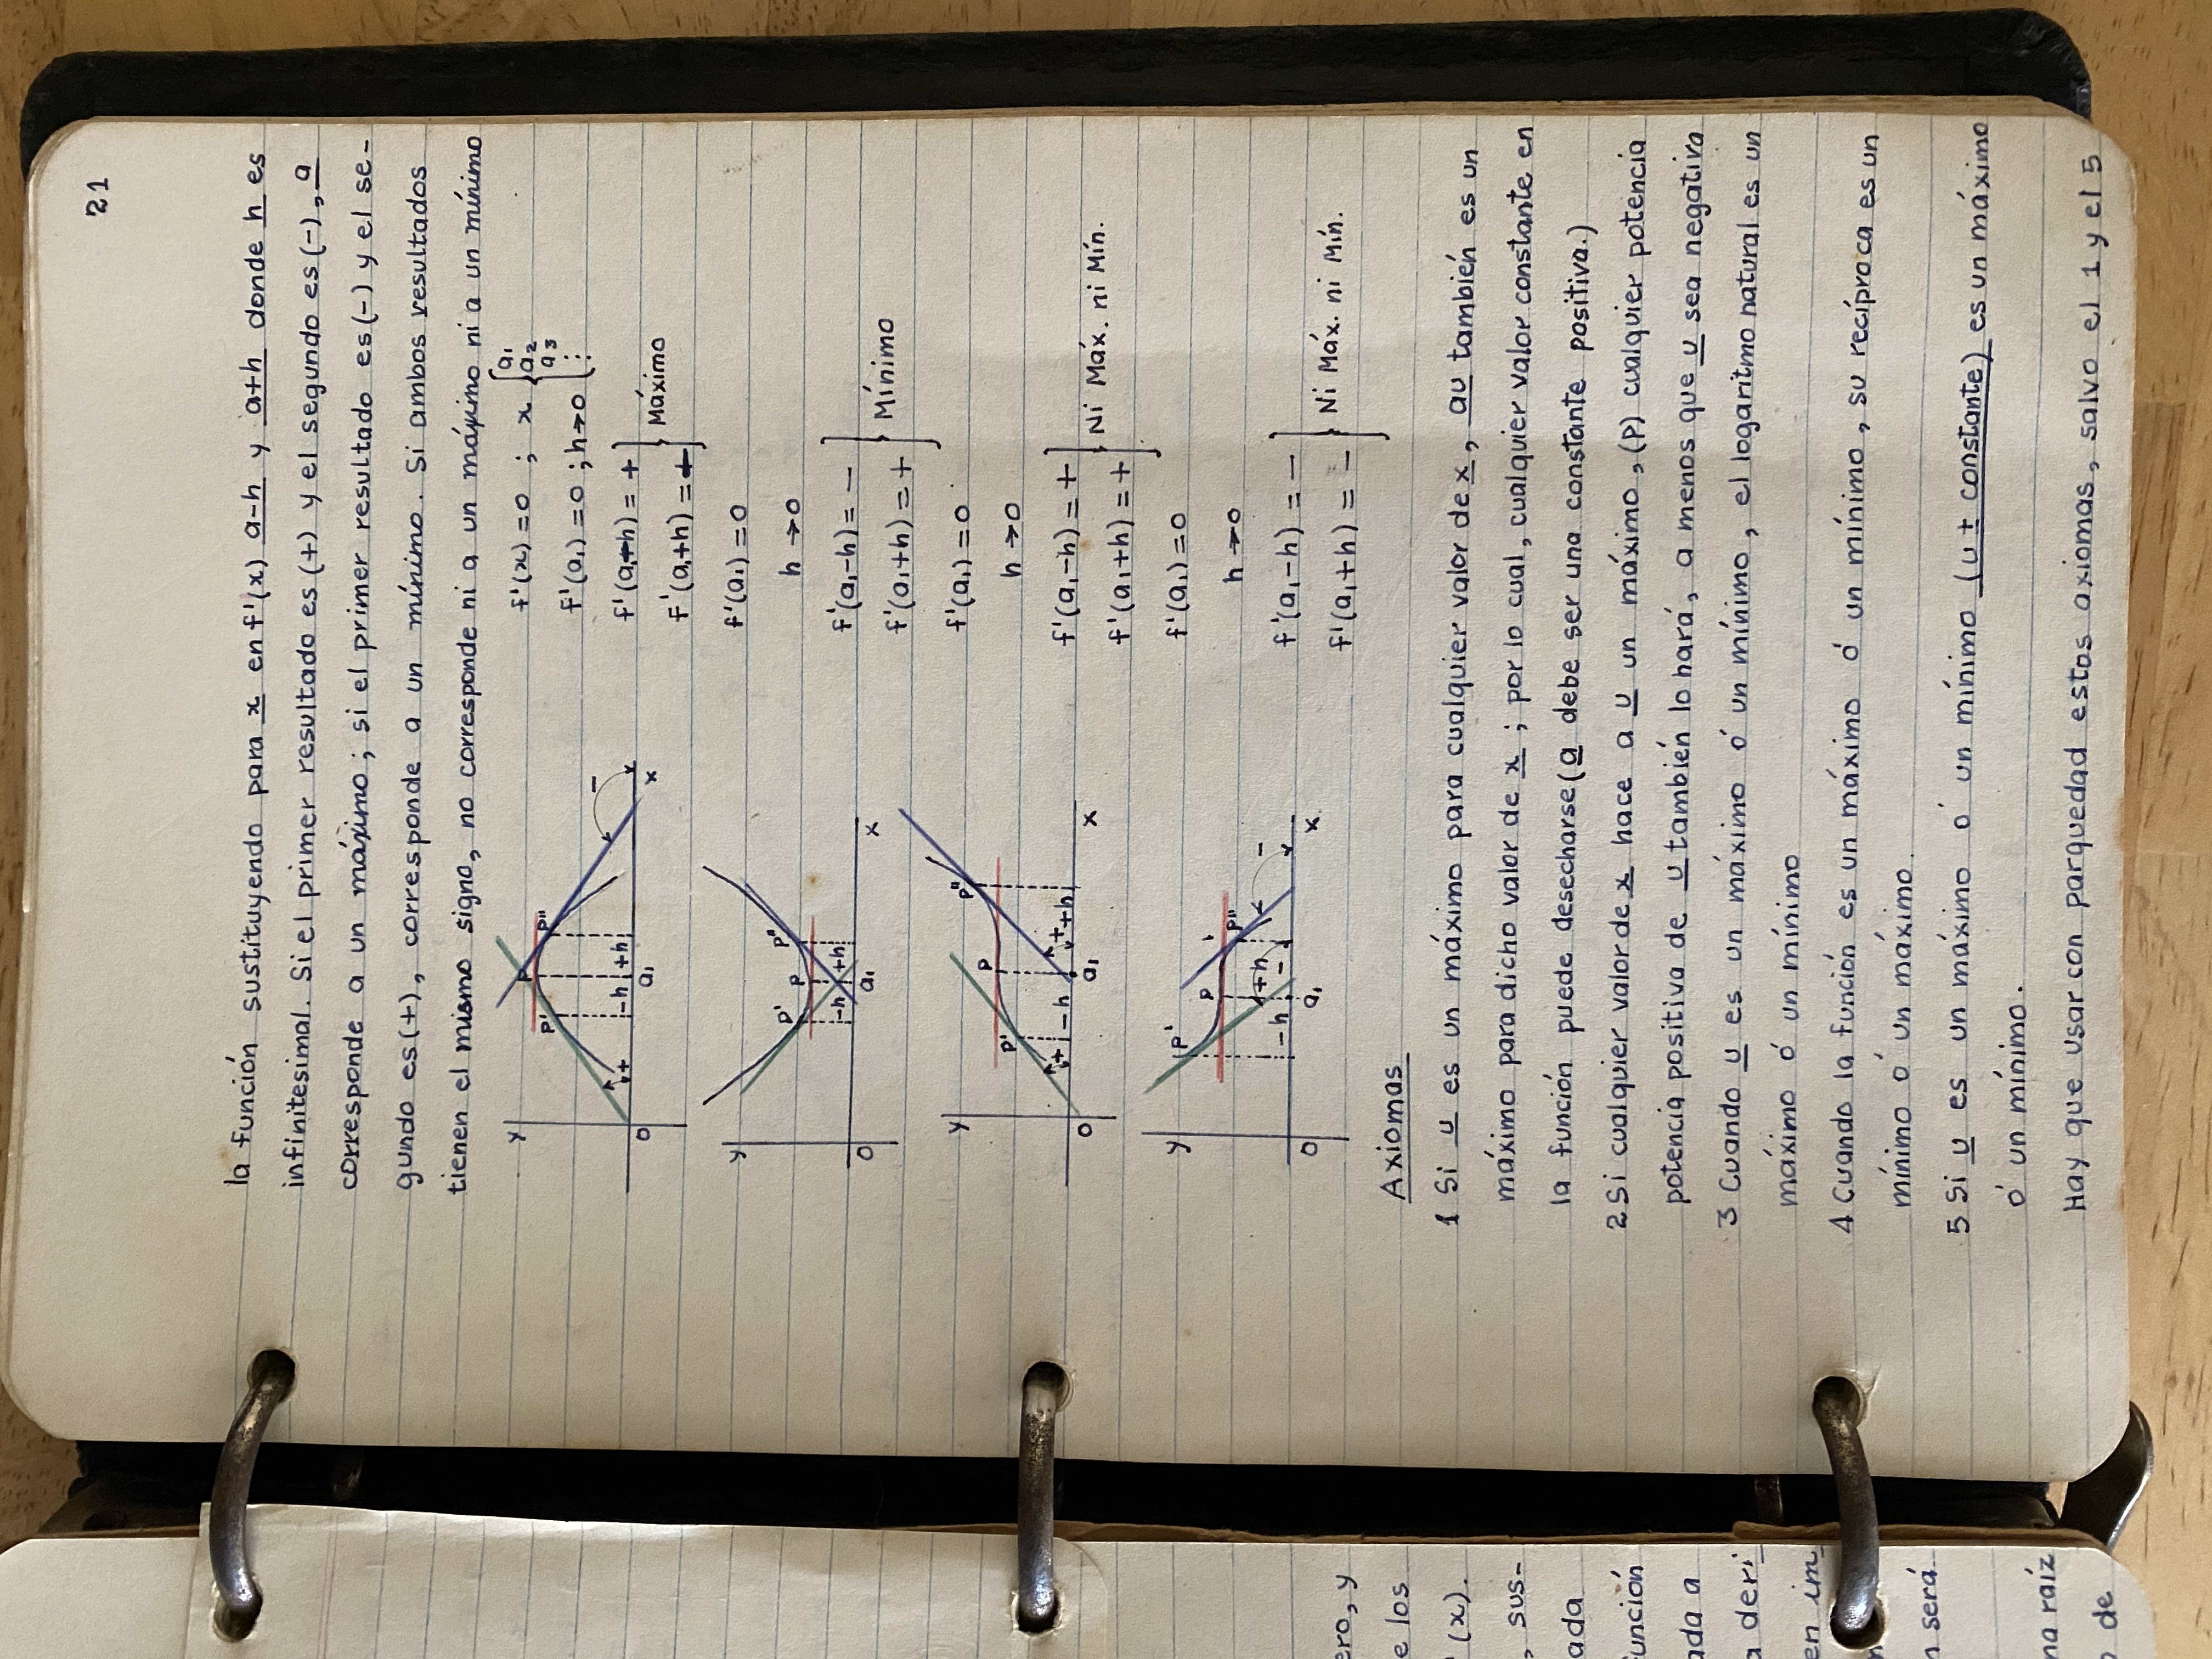 21
la función sustituyendo para x en f'(x) a-h y a+h donde h es
infinitesimal. Si el primer resultado es (+) y el segundo es (-), a
corresponde a un máximo; si el primer resultado es (-) y el se-
gundo es (+), corresponde a un mínimo. Si ambos resultados
tienen el mismo signo, no corresponde ni a un máximo ni a un mínimo
y P' P P'' + -h +h - 0 a₁ x
f'(x) = 0 ; x { a₁ a₂ a₃ ⋮
f'(a₁) = 0 ; h→0
f'(a₁-h) = +
f'(a₁+h) = -
} Máximo
y P' P P'' -h +h 0 a₁ x
f'(a₁) = 0
h → 0
f'(a₁-h) = -
f'(a₁+h) = +
} Mínimo
y P' P P'' + -h + +h 0 a₁ x
f'(a₁) = 0
h → 0
f'(a₁-h) = +
f'(a₁+h) = +
} Ni Máx. ni Mín.
y P' P P'' -h +h - - 0 a₁ x
f'(a₁) = 0
h → 0
f'(a₁-h) = -
f'(a₁+h) = -
} Ni Máx. ni Mín.
Axiomas
1 Si u es un máximo para cualquier valor de x, au también es un
máximo para dicho valor de x ; por lo cual, cualquier valor constante en
la función puede desecharse (a debe ser una constante positiva.)
2 Si cualquier valor de x hace a u un máximo, (P) cualquier potencia
potencia positiva de u también lo hará, a menos que u sea negativa
3 Cuando u es un máximo ó un mínimo, el logaritmo natural es un
máximo ó un mínimo
4 Cuando la función es un máximo ó un mínimo, su recíproca es un
mínimo ó un máximo.
5 Si u es un máximo ó un mínimo (u ± constante) es un máximo
ó un mínimo.
Hay que usar con parquedad estos axiomas, salvo el 1 y el 5
ero, y
e los
(x).
, sus-
ada
unción
ada a
a deri
en im
n será
na raíz
o de